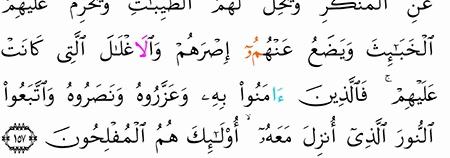 عَنِ ٱلْمُنكَرِ وَيُحِلُّ لَهُمُ ٱلطَّيِّبَٰتِ وَيُحَرِّمُ عَلَيْهِمُ
ٱلْخَبَٰٓئِثَ وَيَضَعُ عَنْهُمُۥٓ إِصْرَهُمْ وَٱلَاغْلَٰلَ ٱلَّتِى كَانَتْ
عَلَيْهِمْ ۚ فَٱلَّذِينَ ءَامَنُوا۟ بِهِۦ وَعَزَّرُوهُ وَنَصَرُوهُ وَٱتَّبَعُوا۟
ٱلنُّورَ ٱلَّذِىٓ أُنزِلَ مَعَهُۥٓ ۙ أُو۟لَٰٓئِكَ هُمُ ٱلْمُفْلِحُونَ ١٥٧